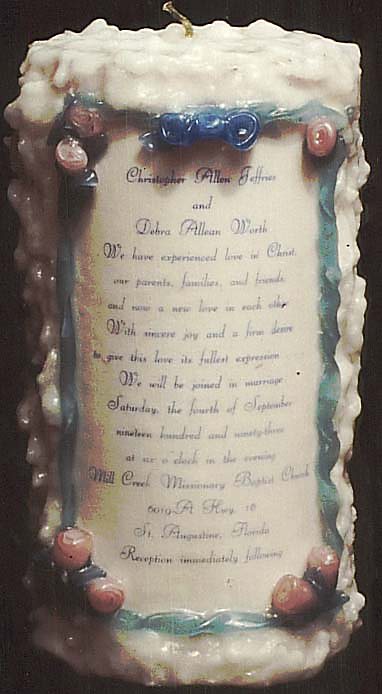 Christopher Allen Jeffries
and
Debra Allean Worth
We have experienced love in Christ,
our parents, families, and friends,
and now a new love in each other
With sincere joy and a firm desire
to give this love its fullest expression
We will be joined in marriage
Saturday, the fourth of September
nineteen hundred and ninety-three
at six o'clock in the evening
Mill Creek Missionary Baptist Church
6019-A Hwy. 16
St. Augustine, Florida
Reception immediately following